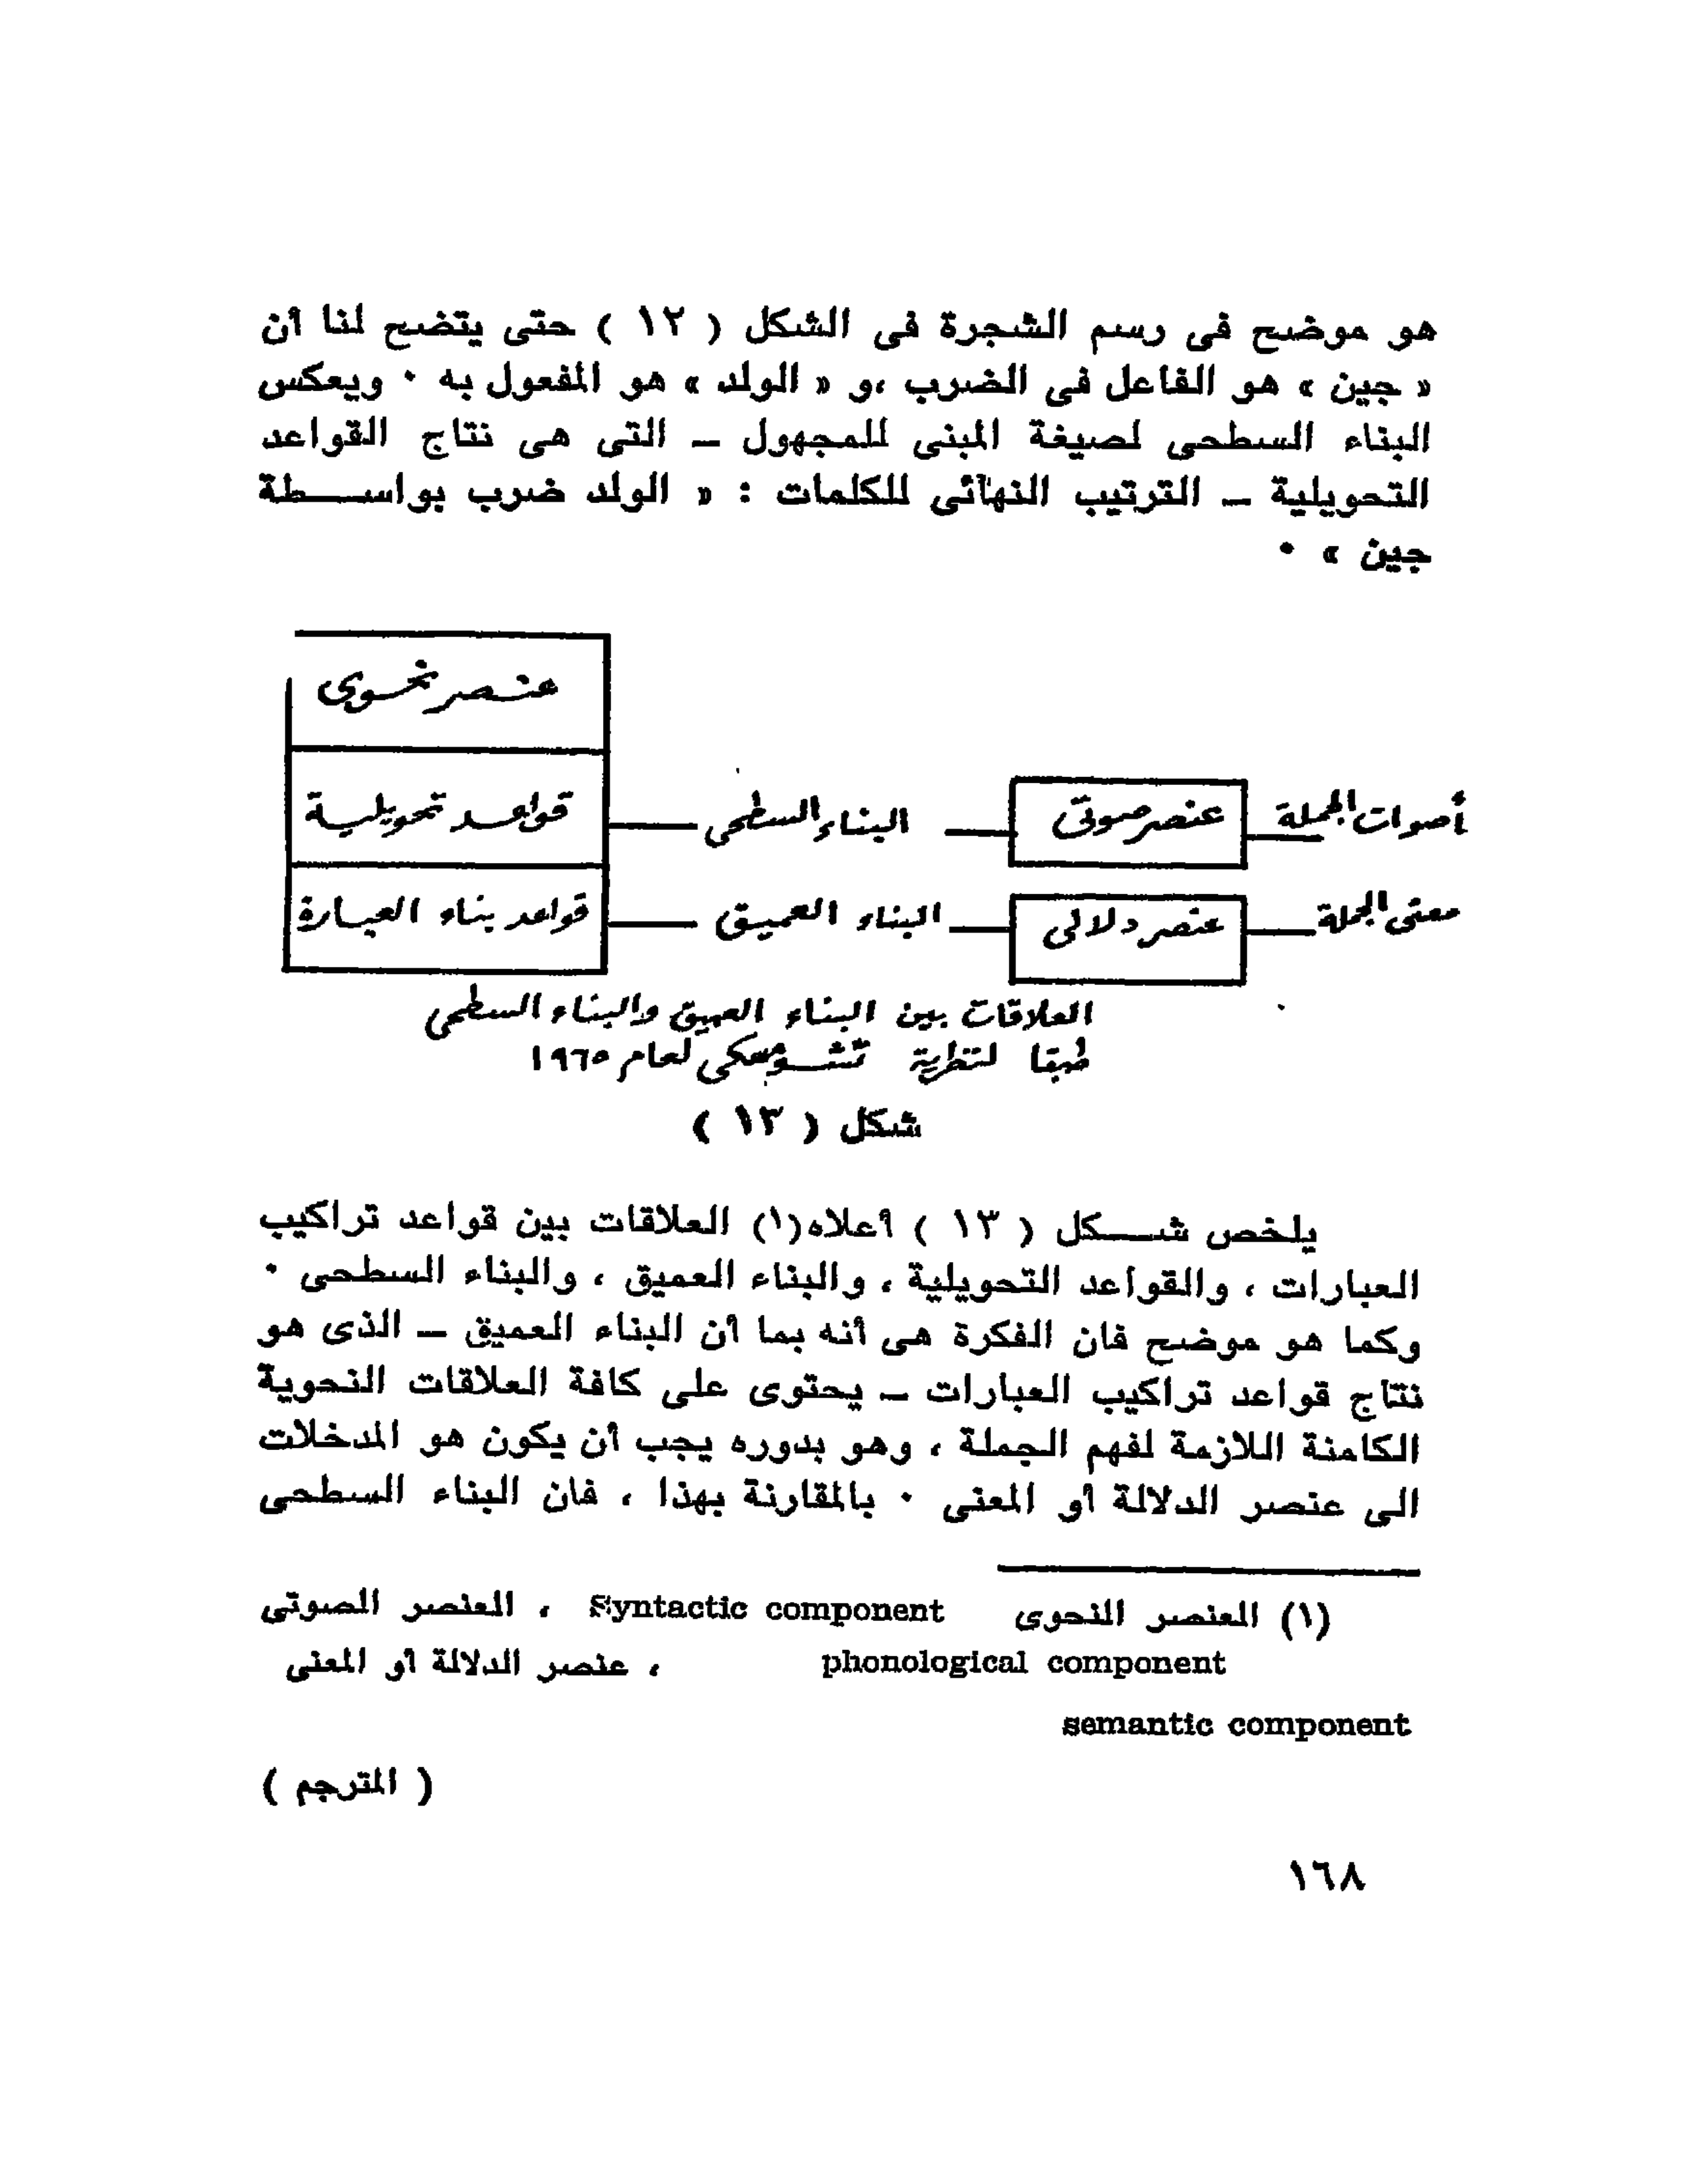 هو موضح فى رسم الشجرة فى الشكل ( ١٢ ) حتى يتضح لنا أن
« جين » هو الفاعل فى الضرب ،و « الولد » هو المفعول به ٠ ويعكس
البناء السطحى لصيغة المبنى للمجهول ــ التى هى نتاج القواعد
التحويلية ــ الترتيب النهائى للكلمات : « الولد ضرب بواســـطة
جين » ٠
عنصر نحوى
أصوات الجملة
عنصر صوتى
البناء السطحى
قواعد تحويلية
معنى الجملة
عنصر دلالى
البناء العميق
قواعد بناء العبارة
العلاقات بين البناء العميق والبناء السطحى
طبقا لنظرية تشومسكى لعام ١٩٦٥
شكل ( ١٣ )
يلخص شـــكل ( ١٣ ) أعلاه(١) العلاقات بين قواعد تراكيب
العبارات ، والقواعد التحويلية ، والبناء العميق ، والبناء السطحى ٠
وكما هو موضح فان الفكرة هى أنه بما أن البناء العميق ــ الذى هو
نتاج قواعد تراكيب العبارات ــ يحتوى على كافة العلاقات النحوية
الكامنة اللازمة لفهم الجملة ، وهو بدوره يجب أن يكون هو المدخلات
الى عنصر الدلالة أو المعنى ٠ بالمقارنة بهذا ، فان البناء السطحى
(١) العنصر النحوى Syntactic component ، العنصر الصوتى
phonological component ، عنصر الدلالة أو المعنى
semantic component
( المترجم )
١٦٨